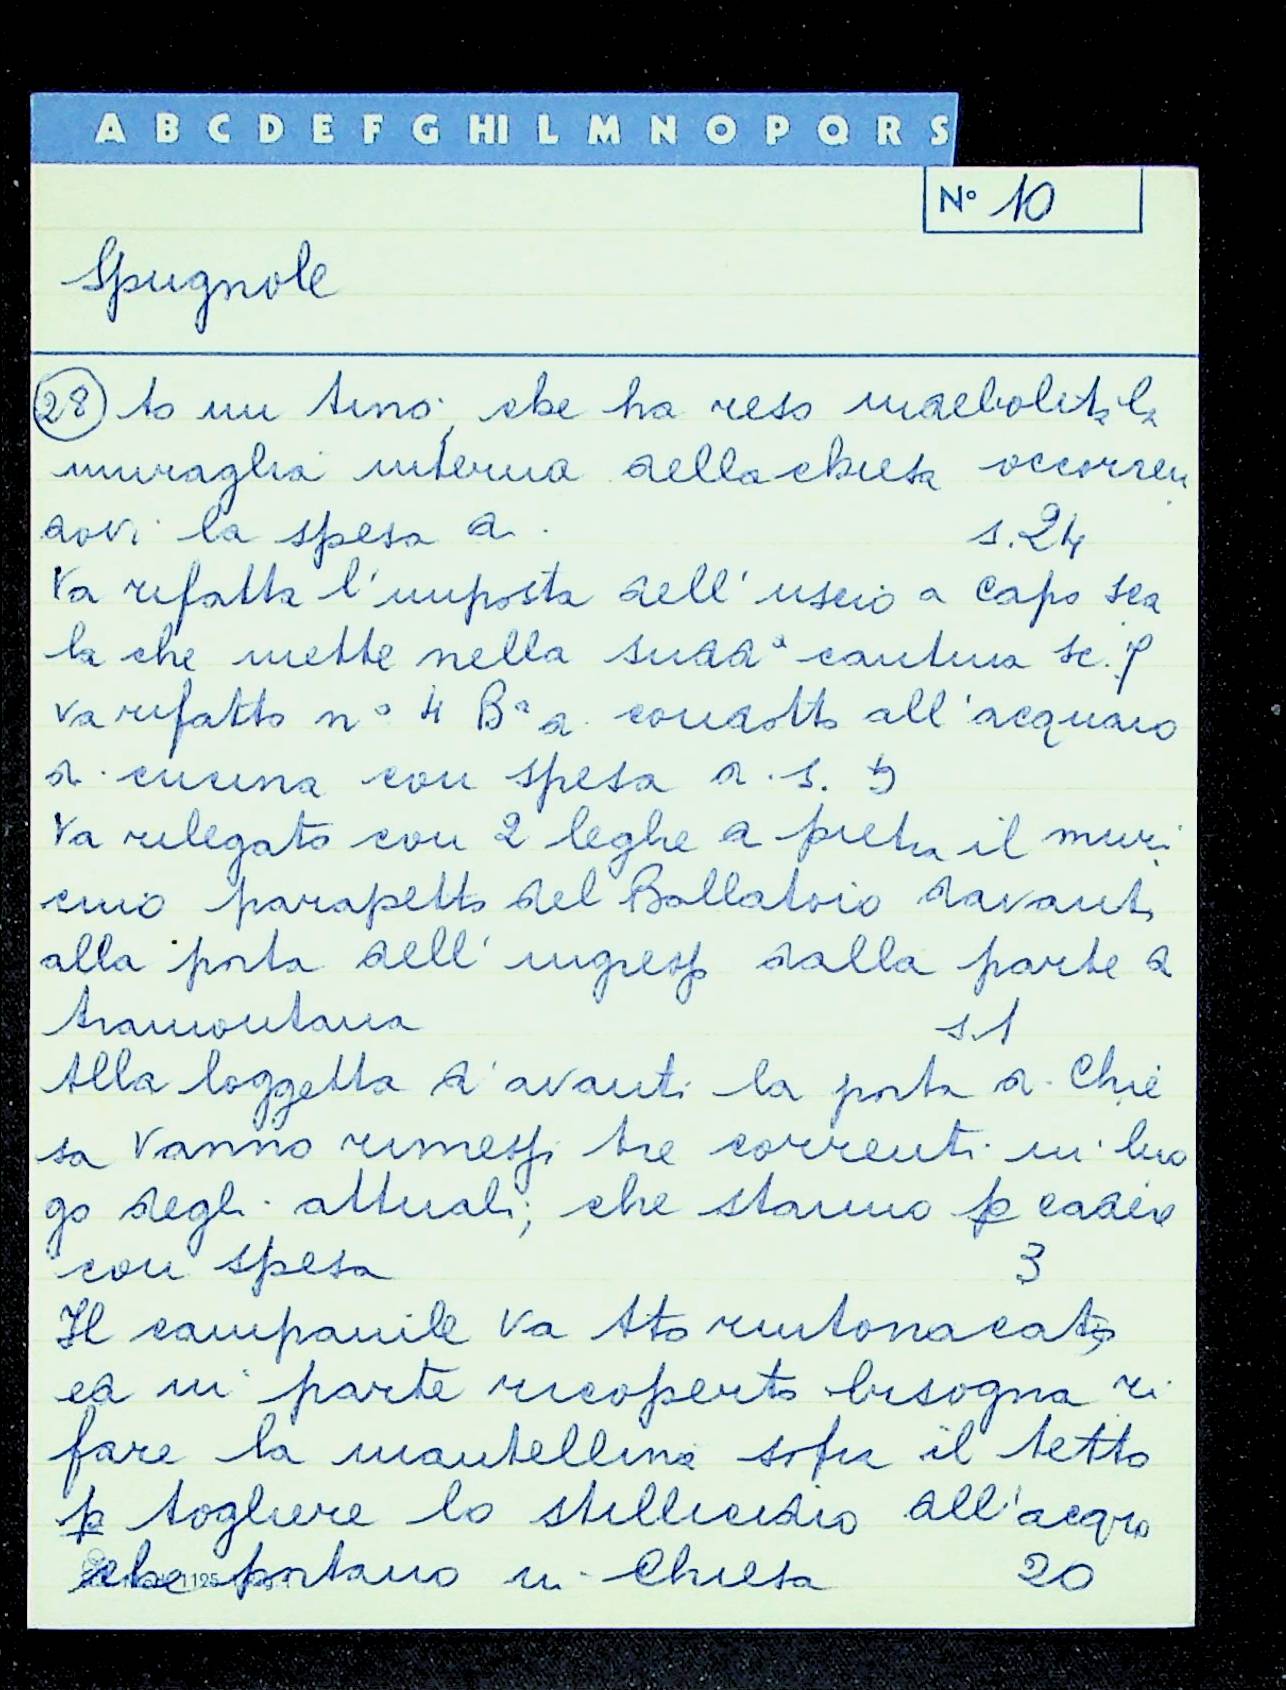 A B C D E F G HI L M N O P Q R S
N° 10
Spugnole
28 to un tino, che ha reso indebolita la
muraglia interna della chiesa occorren
dovi la spesa di s. 24
Va rifatta l'imposta dell'uscio a capo sca
la che mette nella sudda cantina sc. 7
va rifatto n° 4 Ba di condotto all'acquaio
di cucina con spesa di s. 5
Va rilegato con 2 leghe di pietra il muri
cino parapetto del Ballatoio davanti
alla porta dell'ingresso dalla parte di
tramontana s. 1
Alla loggetta d'avanti la porta di Chie
sa Vanno rimessi tre correnti in luo
go degli attuali; che stanno p cadere
con spesa 3
Il campanile va tto rintonacato
ed in parte ricoperto bisogna ri
fare la mantellina sopra il tetto
p togliere lo stillicidio dell'acqua
che portano in Chiesa 20